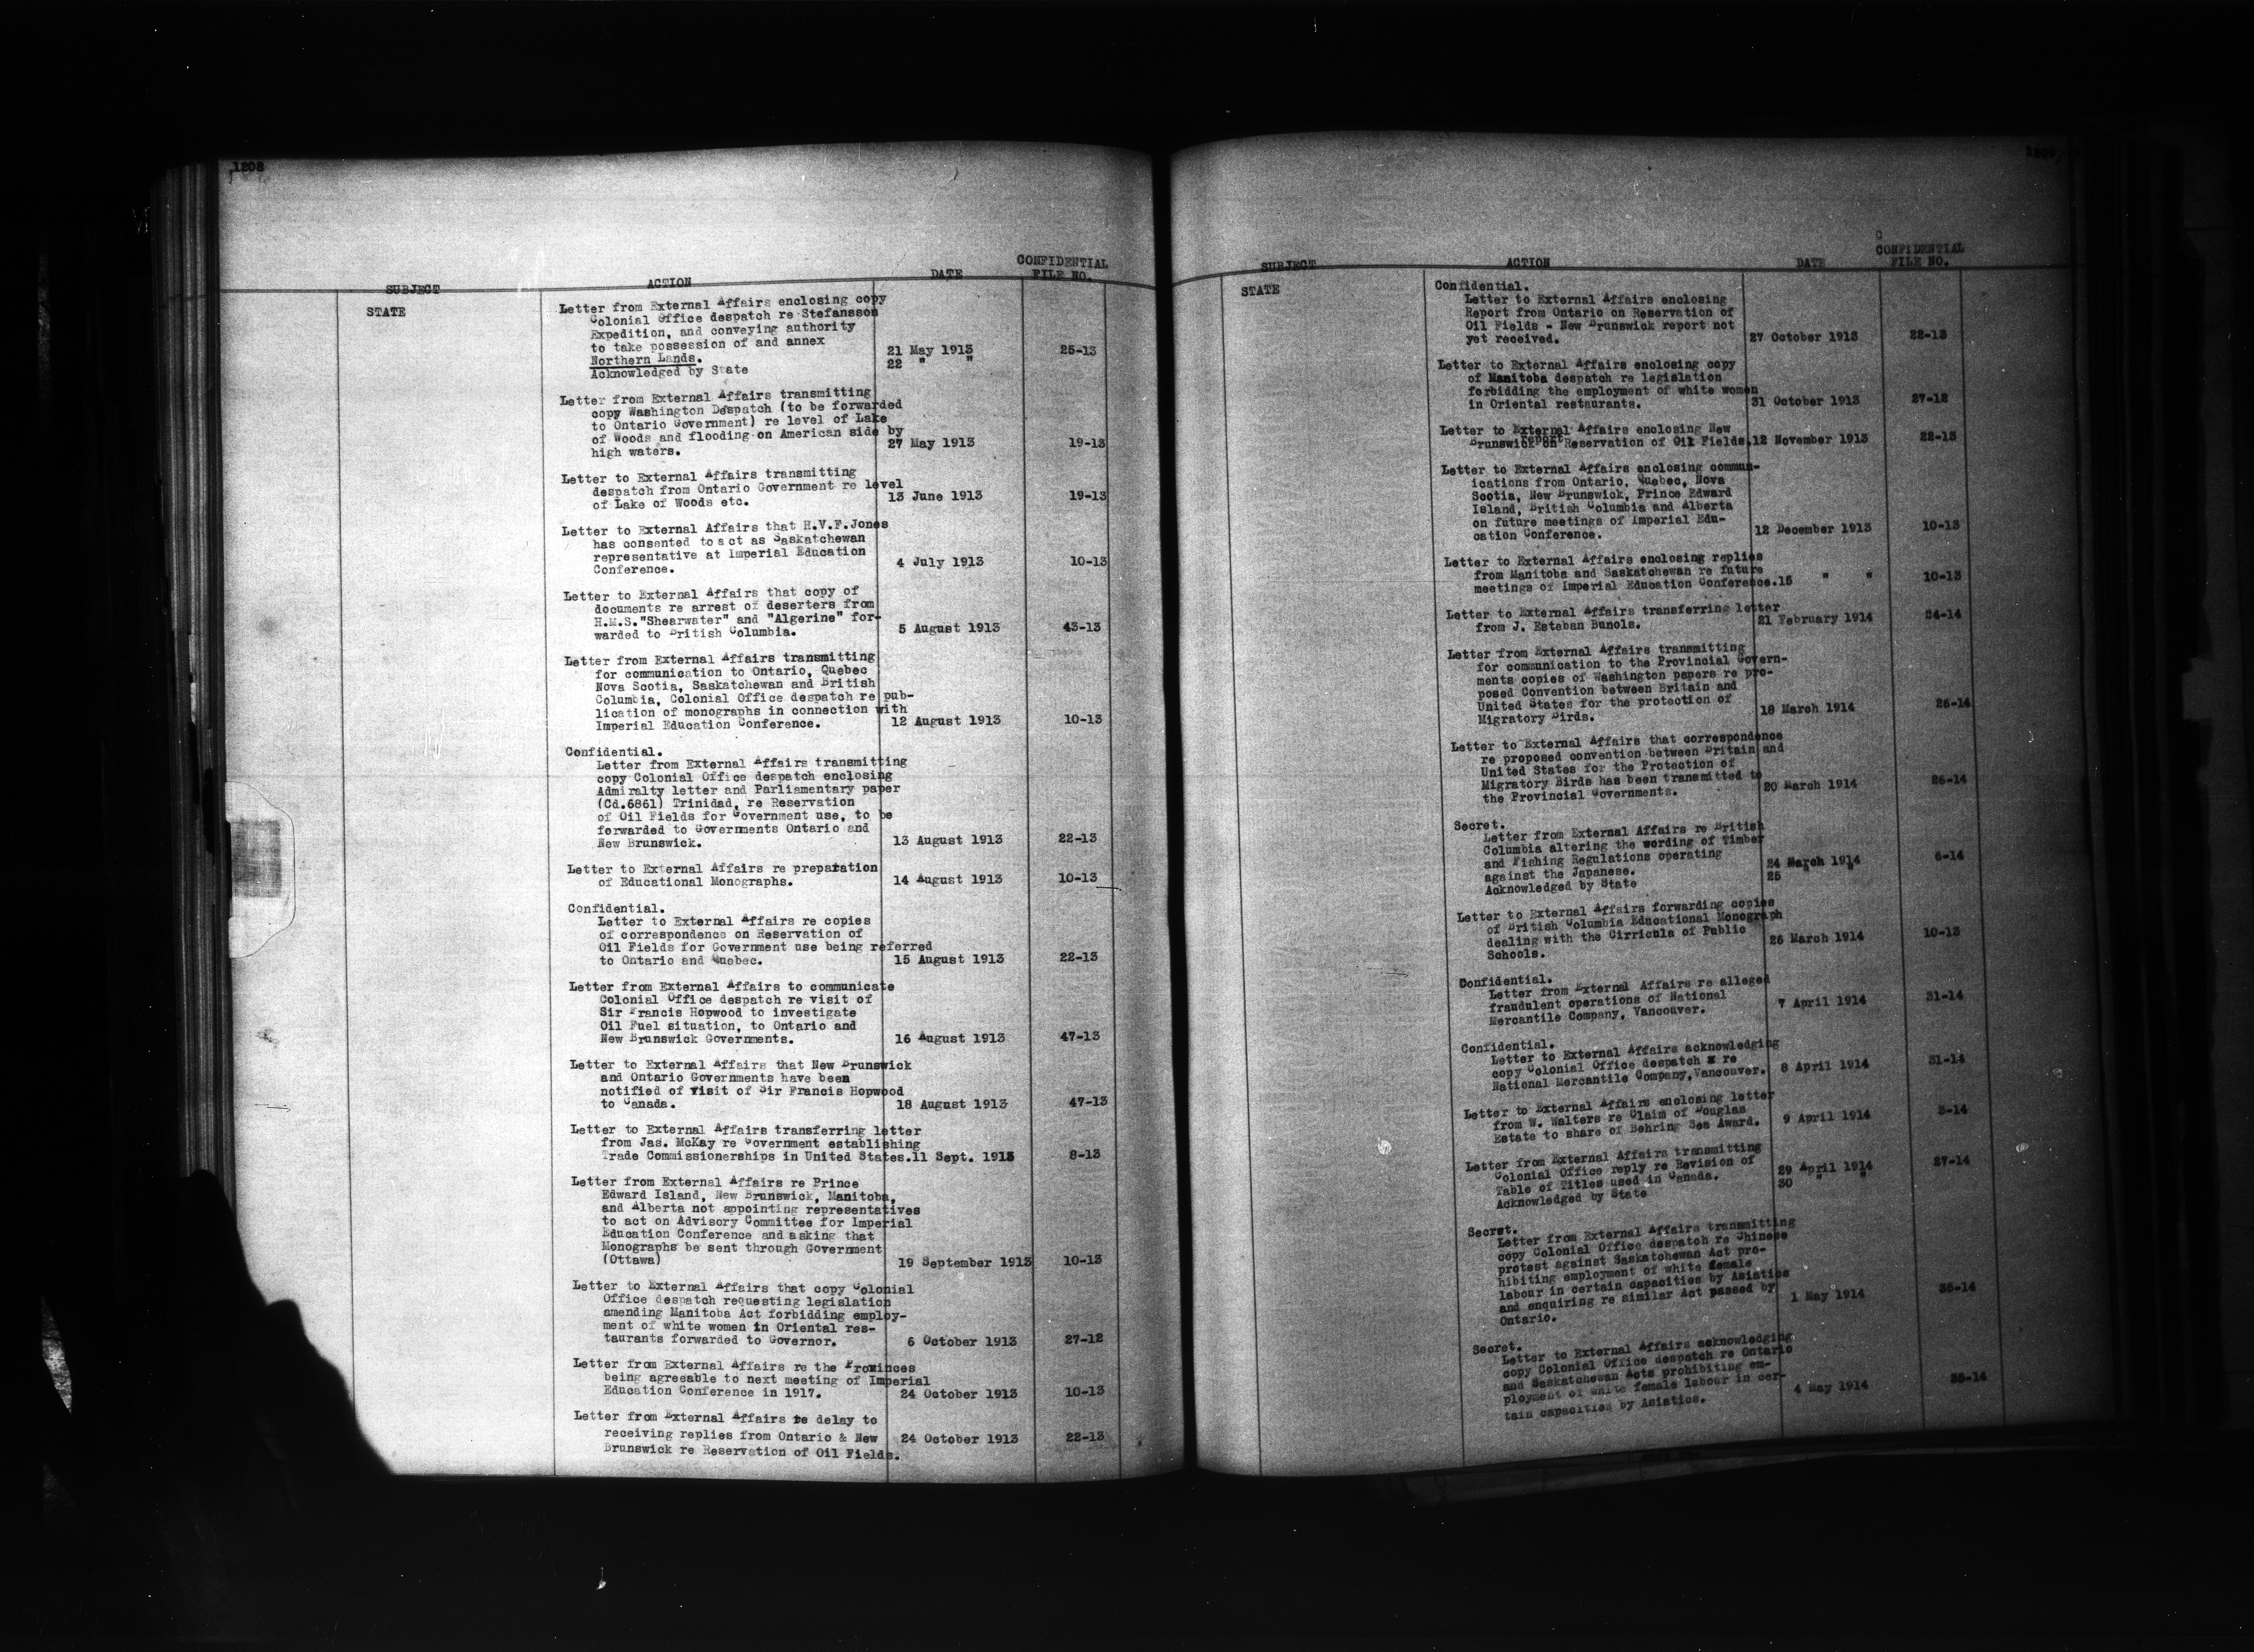 1208
SUBJECT ACTION DATE CONFIDENTIAL FILE NO.
STATE
Letter from External Affairs enclosing copy
Colonial Office despatch re Stefansson
Expedition, and conveying authority
to take possession of and annex
Northern Lands. 21 May 1913 25-13
Acknowledged by State 22 " "
Letter from External Affairs transmitting
copy Washington Despatch (to be forwarded
to Ontario Government) re level of Lake
of Woods and flooding on American side by
high waters. 27 May 1913 19-13
Letter to External Affairs transmitting
despatch from Ontario Government re level
of Lake of Woods etc. 13 June 1913 19-13
Letter to External Affairs that H.V.F.Jones
has consented to act as Saskatchewan
representative at Imperial Education
Conference. 4 July 1913 10-13
Letter to External Affairs that copy of
documents re arrest of deserters from
H.M.S."Shearwater" and "Algerine" for-
warded to British Columbia. 5 August 1913 43-13
Letter from External Affairs transmitting
for communication to Ontario, Quebec
Nova Scotia, Saskatchewan and British
Columbia, Colonial Office despatch re pub-
lication of monographs in connection with
Imperial Education Conference. 12 August 1913 10-13
Confidential.
Letter from External Affairs transmitting
copy Colonial Office despatch enclosing
Admiralty letter and Parliamentary paper
(Cd.6861) Trinidad, re Reservation
of Oil Fields for Government use, to be
forwarded to Governments Ontario and
New Brunswick. 13 August 1913 22-13
Letter to External Affairs re preparation
of Educational Monographs. 14 August 1913 10-13
Confidential.
Letter to External Affairs re copies
of correspondence on Reservation of
Oil Fields for Government use being referred
to Ontario and Quebec. 15 August 1913 22-13
Letter from External Affairs to communicate
Colonial Office despatch re visit of
Sir Francis Hopwood to investigate
Oil Fuel situation, to Ontario and
New Brunswick Governments. 16 August 1913 47-13
Letter to External Affairs that New Brunswick
and Ontario Governments have been
notified of visit of Sir Francis Hopwood
to Canada. 18 August 1913 47-13
Letter to External Affairs transferring letter
from Jas. McKay re Government establishing
Trade Commissionerships in United States. 11 Sept. 1913 8-13
Letter from External Affairs re Prince
Edward Island, New Brunswick, Manitoba,
and Alberta not appointing representatives
to act on Advisory Committee for Imperial
Education Conference and asking that
Monographs be sent through Government
(Ottawa) 19 September 1913 10-13
Letter to External Affairs that copy Colonial
Office despatch requesting legislation
amending Manitoba Act forbidding employ-
ment of white women in Oriental res-
taurants forwarded to Governor. 6 October 1913 27-12
Letter from External Affairs re the Provinces
being agreeable to next meeting of Imperial
Education Conference in 1917. 24 October 1913 10-13
Letter from External Affairs re delay to
receiving replies from Ontario & New
Brunswick re Reservation of Oil Fields. 24 October 1913 22-13
SUBJECT ACTION DATE CONFIDENTIAL FILE NO.
STATE
Confidential.
Letter to External Affairs enclosing
Report from Ontario on Reservation of
Oil Fields - New Brunswick report not
yet received. 27 October 1913 22-13
Letter to External Affairs enclosing copy
of Manitoba despatch re legislation
forbidding the employment of white women
in Oriental restaurants. 31 October 1913 27-12
Letter to External Affairs enclosing New
Brunswick report on Reservation of Oil Fields. 12 November 1913 22-13
Letter to External Affairs enclosing commun-
ications from Ontario, Quebec, Nova
Scotia, New Brunswick, Prince Edward
Island, British Columbia and Alberta
on future meetings of Imperial Edu-
cation Conference. 12 December 1913 10-13
Letter to External Affairs enclosing replies
from Manitoba and Saskatchewan re future
meetings of Imperial Education Conference. 15 " " 10-13
Letter to External Affairs transferring letter
from J. Esteban Bunols. 21 February 1914 24-14
Letter from External Affairs transmitting
for communication to the Provincial Govern-
ments copies of Washington papers re pro-
posed Convention between Britain and
United States for the protection of
Migratory Birds. 18 March 1914 26-14
Letter to External Affairs that correspondence
re proposed convention between Britain and
United States for the Protection of
Migratory Birds has been transmitted to
the Provincial Governments. 20 March 1914 26-14
Secret.
Letter from External Affairs re British
Columbia altering the wording of Timber
and Fishing Regulations operating
against the Japanese. 24 March 1914 6-14
Acknowledged by State 25 " "
Letter to External Affairs forwarding copies
of British Columbia Educational Monograph
dealing with the Cirricula of Public
Schools. 26 March 1914 10-13
Confidential.
Letter from External Affairs re alleged
fraudulent operations of National
Mercantile Company, Vancouver. 7 April 1914 31-14
Confidential.
Letter to External Affairs acknowledging
copy Colonial Office despatch re
National Mercantile Company,Vancouver. 8 April 1914 31-14
Letter to External Affairs enclosing letter
from W. Walters re Claim of Douglas
Estate to share of Behring Sea Award. 9 April 1914 3-14
Letter from External Affairs transmitting
Colonial Office reply re Revision of
Table of Titles used in Canada. 29 April 1914 27-14
Acknowledged by State 30 " "
Secret.
Letter from External Affairs transmitting
copy Colonial Office despatch re Chinese
protest against Saskatchewan Act pro-
hibiting employment of white female
labour in certain capacities by Asiatics
and enquiring re similar Act passed by
Ontario. 1 May 1914 35-14
Secret.
Letter to External Affairs acknowledging
copy Colonial Office despatch re Ontario
and Saskatchewan Acts prohibiting em-
ployment of white female labour in cer-
tain capacities by Asiatics. 4 May 1914 35-14